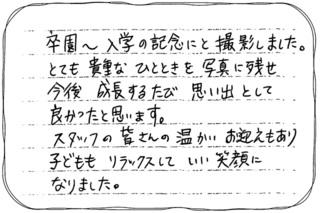 卒園～入学の記念にと撮影しました。
とても貴重なひとときを写真に残せ
今後成長するたび思い出として
良かったと思います。
スタッフの皆さんの温かいお迎えもあり
子どももリラックスしていい笑顔に
なりました。